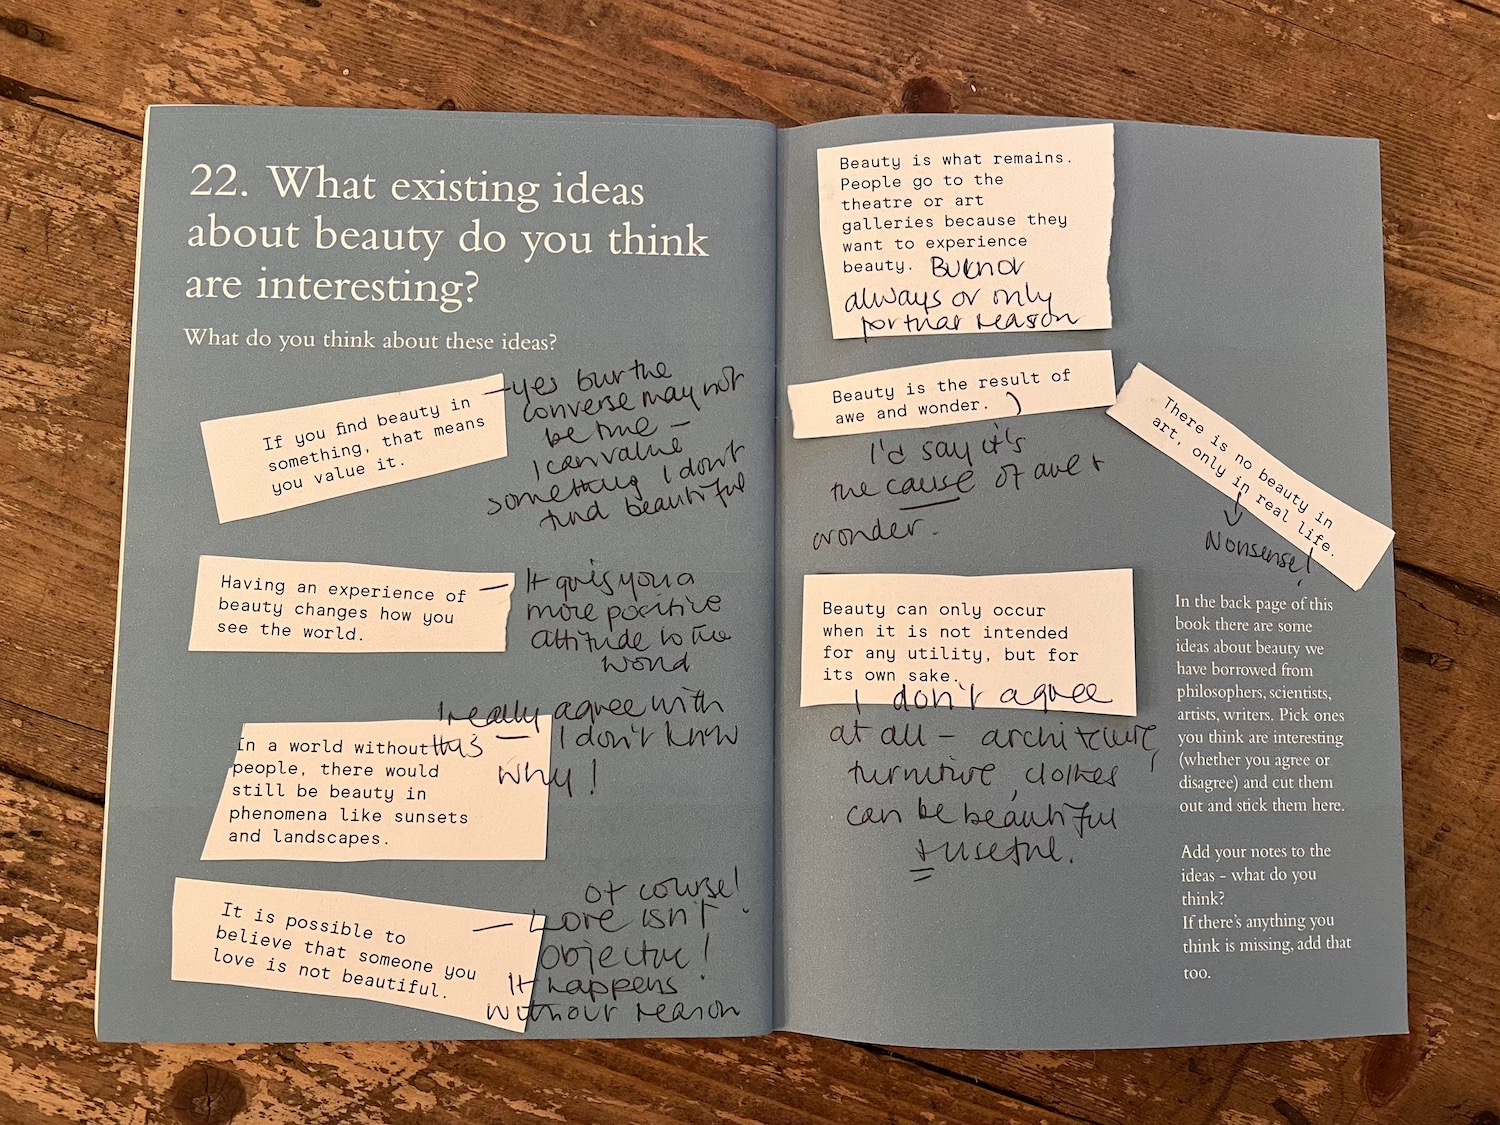 22. What existing ideas
about beauty do you think
are interesting?
What do you think about these ideas?
If you find beauty in
something, that means
you value it.
yes but the
converse may not
be true –
I can value
something I don't
find beautiful
Having an experience of
beauty changes how you
see the world.
It gives you a
more positive
attitude to the
world
In a world without
people, there would
still be beauty in
phenomena like sunsets
and landscapes.
I really agree with
this I don't know
why!
It is possible to
believe that someone you
love is not beautiful.
of course!
Love isn't
objective!
It happens
without reason
Beauty is what remains.
People go to the
theatre or art
galleries because they
want to experience
beauty. But not
always or only
for that reason
Beauty is the result of
awe and wonder.
I'd say it's
the cause of awe +
wonder.
There is no beauty in
art, only in real life.
Nonsense!
Beauty can only occur
when it is not intended
for any utility, but for
its own sake.
I don't agree
at all – architecture,
furniture, clothes
can be beautiful
+ useful.
In the back page of this
book there are some
ideas about beauty we
have borrowed from
philosophers, scientists,
artists, writers. Pick ones
you think are interesting
(whether you agree or
disagree) and cut them
out and stick them here.
Add your notes to the
ideas - what do you
think?
If there's anything you
think is missing, add that
too.